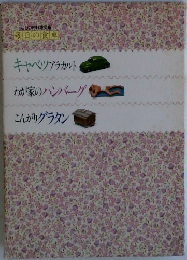 毎日の食卓
キャベツアラカルト
わが家のハンバーグ
こんがりグラタン